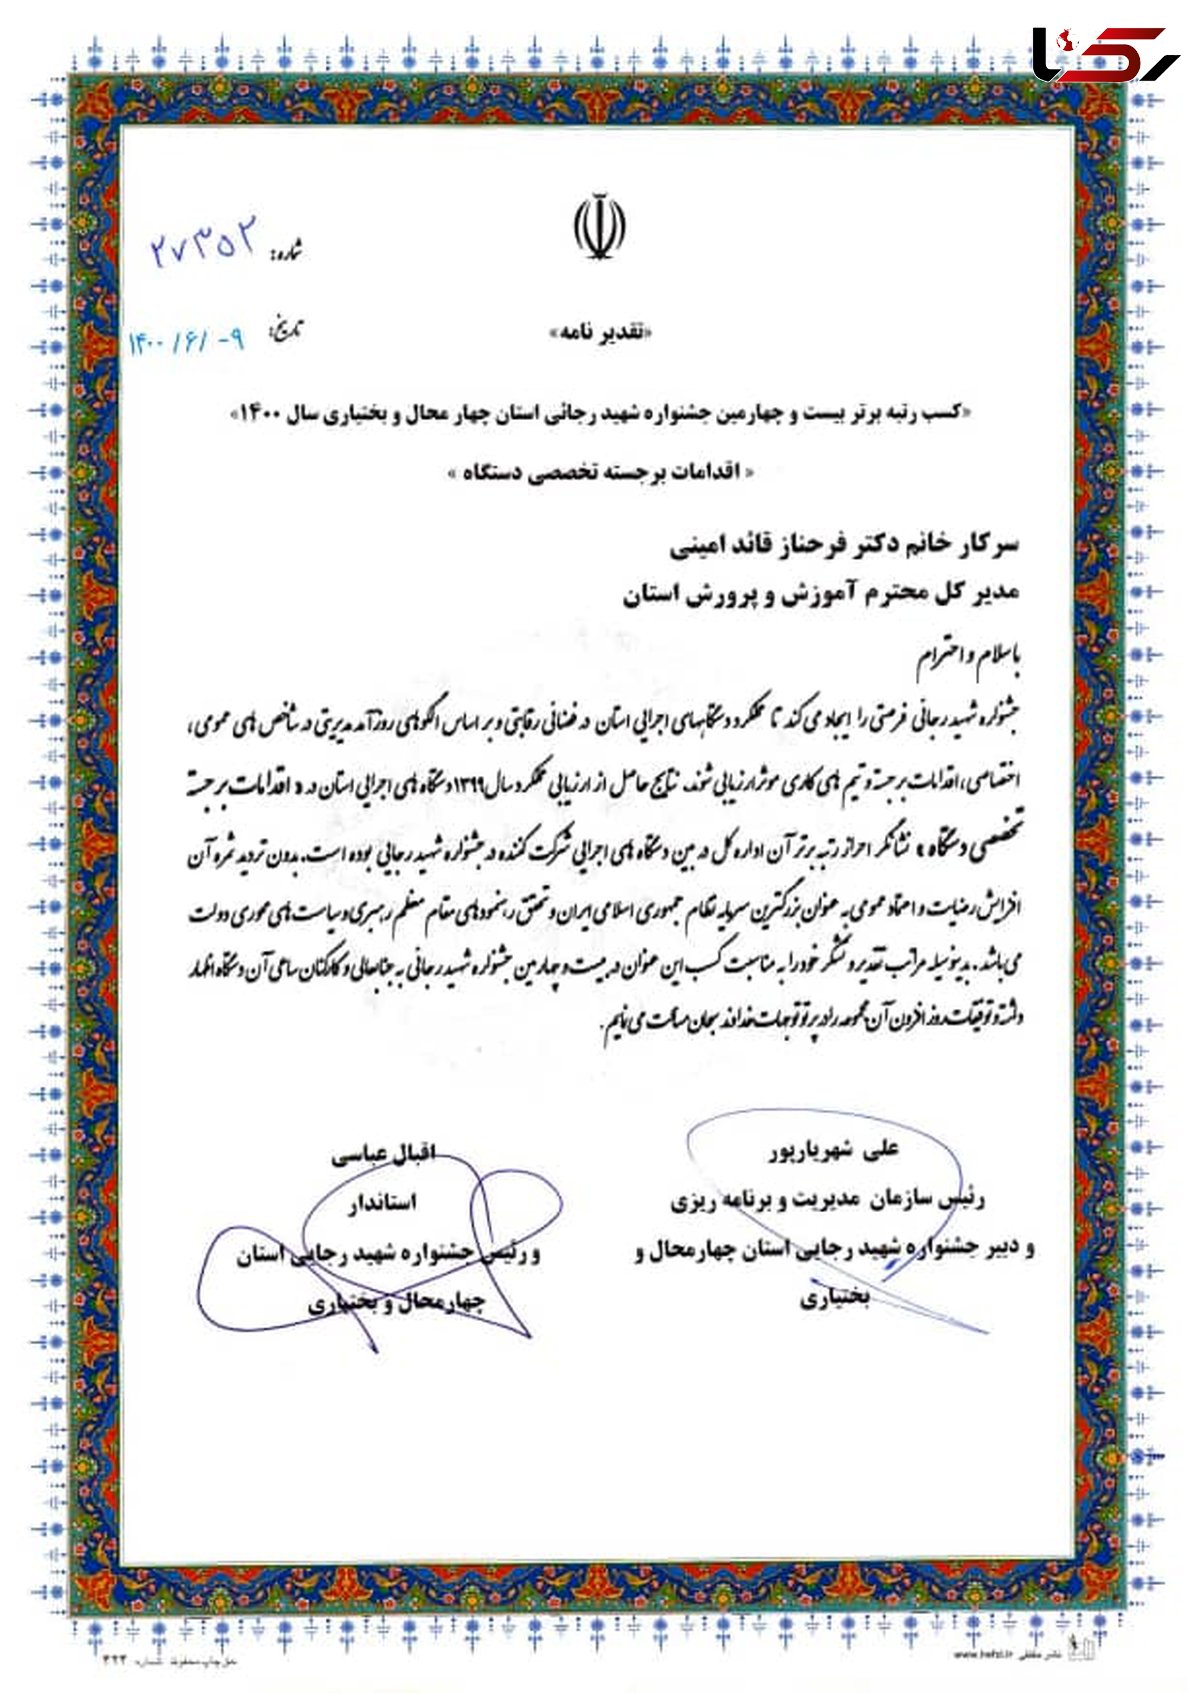 رکنا
شماره: ۲۷۳۵۲
تاریخ: ۱۴۰۰/۶/۰۹
«تقدیر نامه»
«کسب رتبه برتر بیست و چهارمین جشنواره شهید رجائی استان چهار محال و بختیاری سال ۱۴۰۰»
« اقدامات برجسته تخصصی دستگاه »
سرکار خانم دکتر فرحناز قائد امینی
مدیر کل محترم آموزش و پرورش استان
باسلام و احترام
جشنواره شهید رجائی فرصتی را ایجاد می کند تا عملکرد دستگاههای اجرایی استان در فضائی رقابتی و بر اساس الگوهای روزآمد مدیریتی در شاخص های عمومی ،
اختصاصی، اقدامات برجسته و تیم های کاری موثر ارزیابی شوند. نتایج حاصل از ارزیابی عملکرد سال ۱۳۹۹ دستگاه های اجرایی استان در « اقدامات برجسته
تخصصی دستگاه » نشانگر احراز رتبه برتر آن اداره کل در بین دستگاه های اجرائی شرکت کننده در جشنواره شهید رجایی بوده است. بدون تردید ثمره آن
افزایش رضایت و اعتماد عمومی به عنوان بزرگترین سرمایه نظام جمهوری اسلامی ایران و تحقق رهنمودهای مقام معظم رهبری و سیاست های محوری دولت
می باشد. بدینوسیله مراتب تقدیر و تشکر خود را به مناسبت کسب این عنوان در بیست و چهارمین جشنواره شهید رجائی به جنابعالی و کارکنان ساعی آن دستگاه اظهار
داشته و توفیقات روز افزون آن مجموعه را در پرتو توجهات خداوند سبحان مسالت می نمایم.
علی شهریارپور
رئیس سازمان مدیریت و برنامه ریزی
و دبیر جشنواره شهید رجایی استان چهارمحال و
بختیاری
اقبال عباسی
استاندار
و رئیس جشنواره شهید رجایی استان
چهارمحال و بختیاری
حق چاپ محفوظ شماره ۴۲۴
نشر حفظی www.hefzi.ir